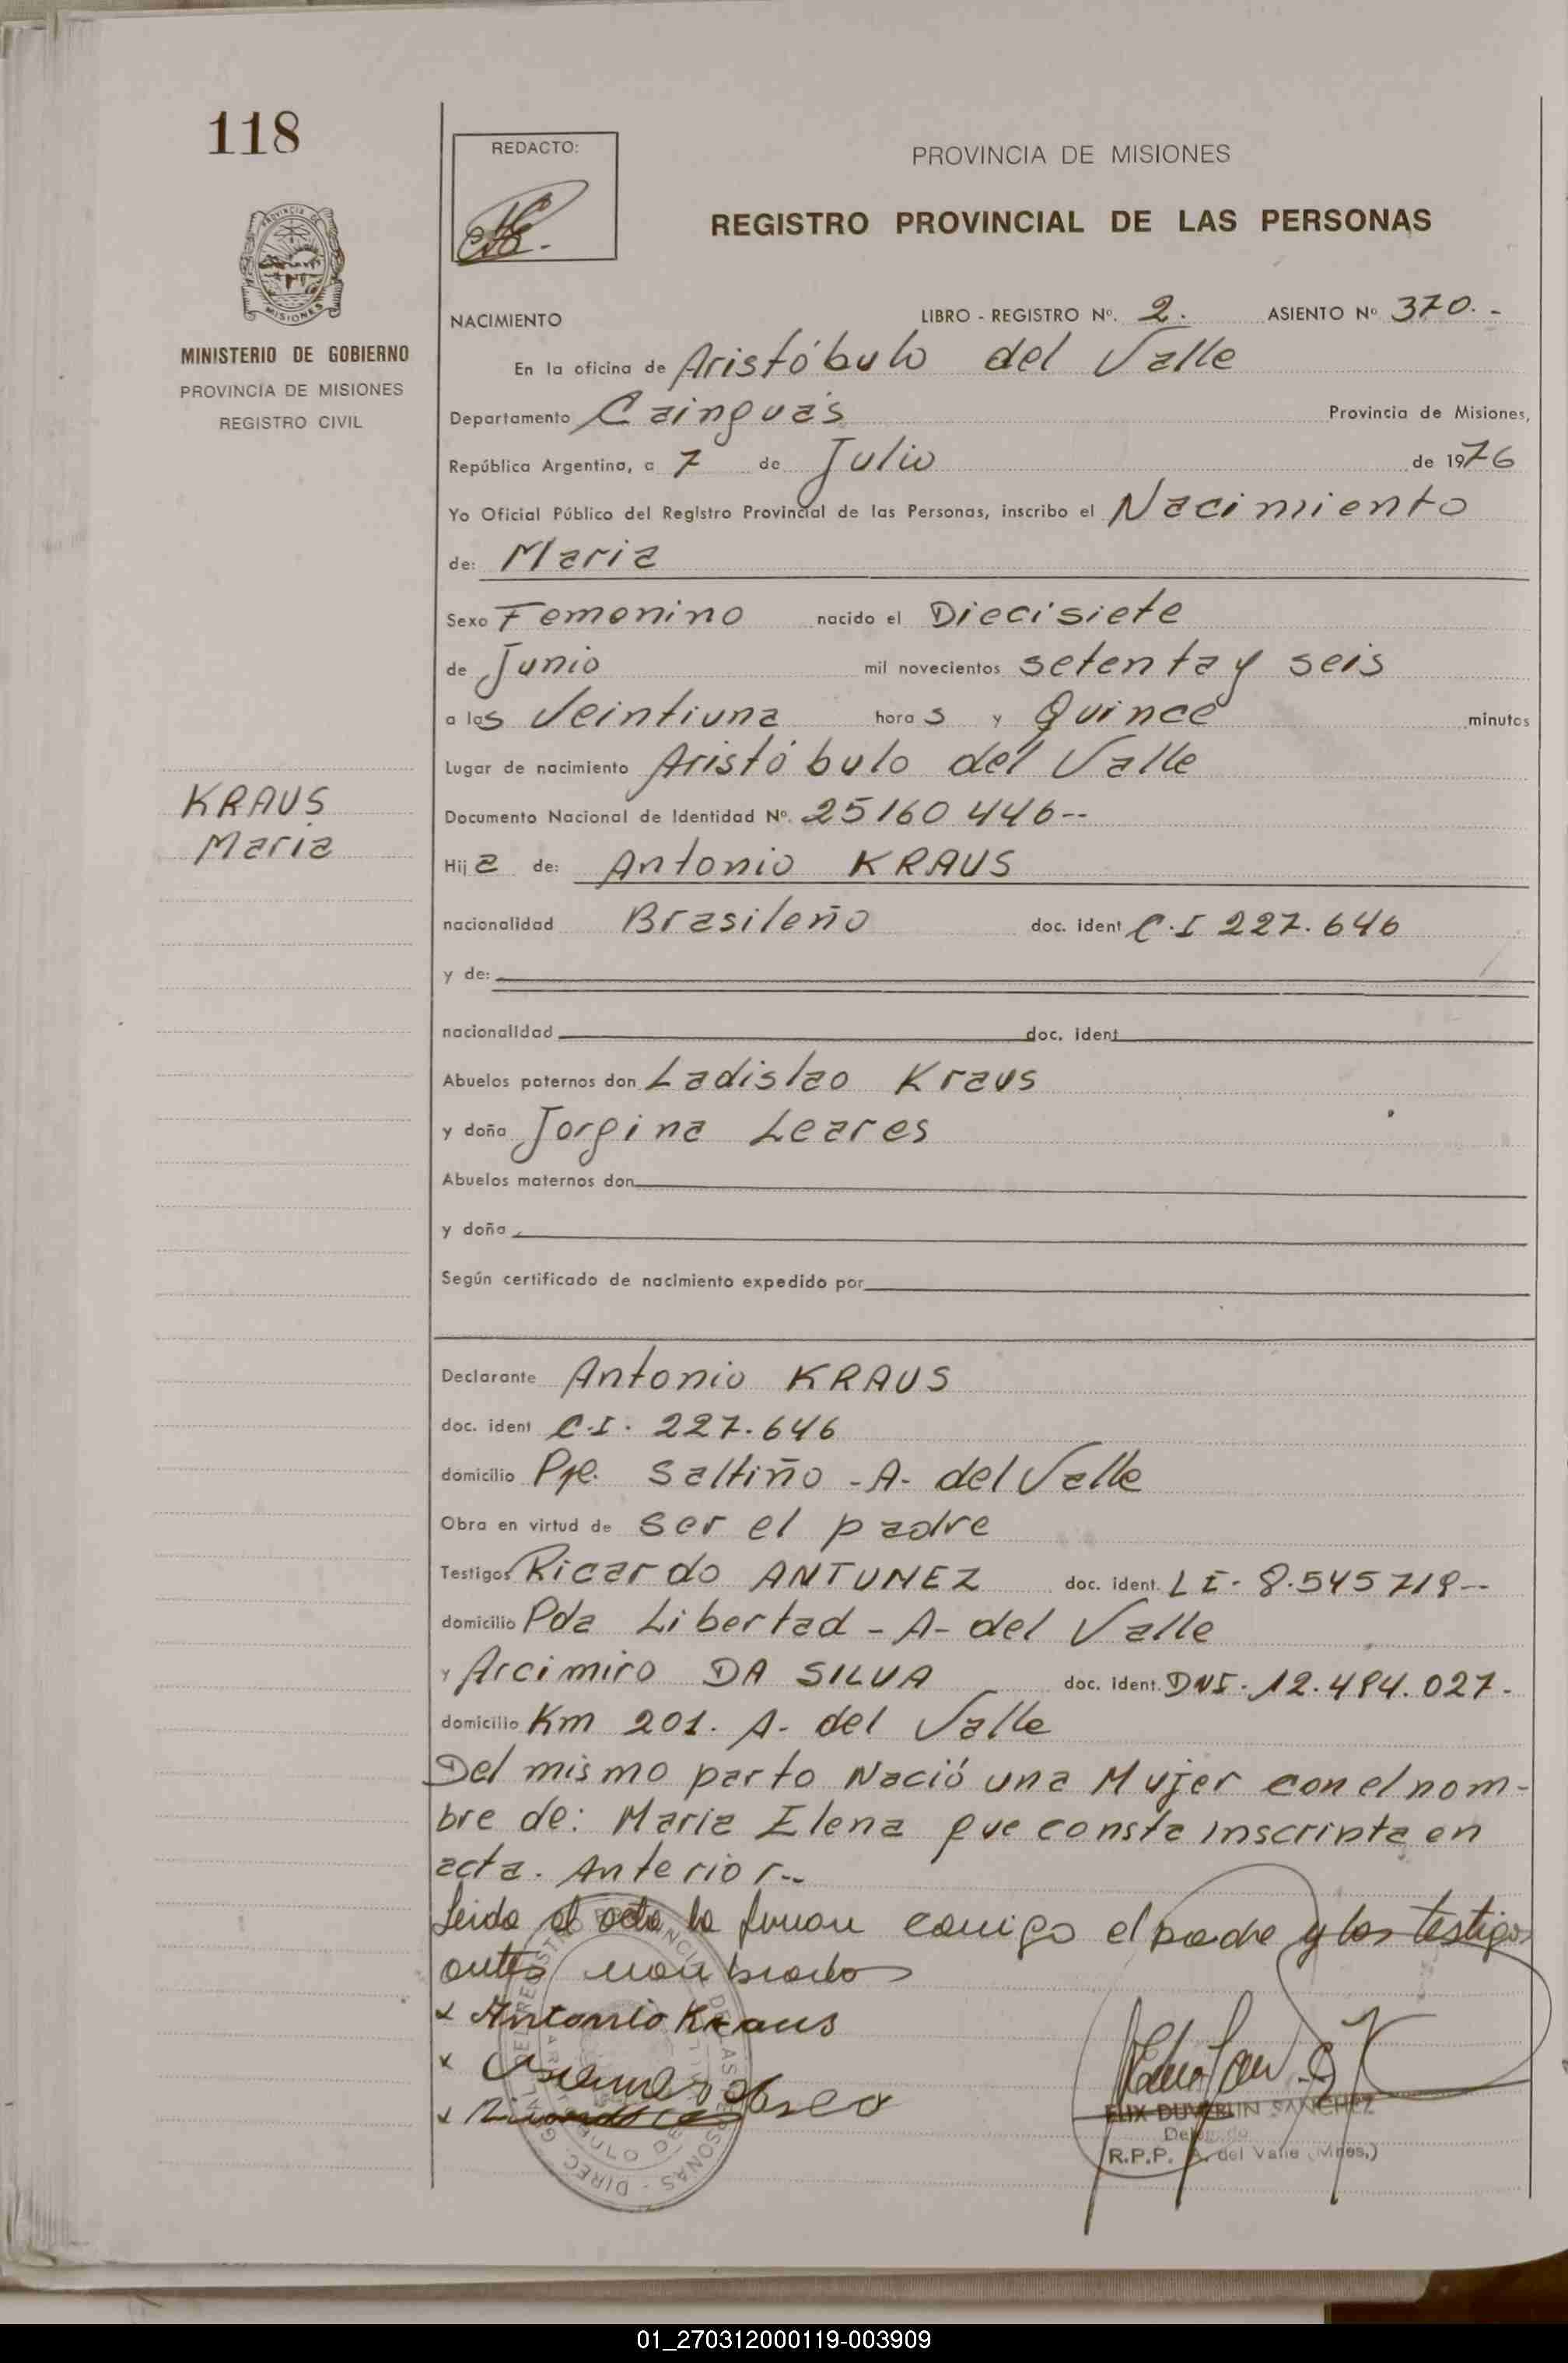 118
REDACTO:
PROVINCIA DE MISIONES
REGISTRO PROVINCIAL DE LAS PERSONAS
PROVINCIA DE
MISIONES
MINISTERIO DE GOBIERNO
PROVINCIA DE MISIONES
REGISTRO CIVIL
NACIMIENTO LIBRO - REGISTRO Nº. 2. ASIENTO Nº 370.-
En la oficina de Aristóbulo del Valle
Departamento Cainguás Provincia de Misiones,
República Argentina, a 7 de Julio de 1976
Yo Oficial Público del Registro Provincial de las Personas, inscribo el Nacimiento
de: Maria
Sexo Femenino nacido el Diecisiete
de Junio mil novecientos setenta y seis
a las Veintiuna horas y Quince minutos
Lugar de nacimiento Aristóbulo del Valle
KRAUS
Maria
Documento Nacional de Identidad Nº. 25160 446--
Hija de: Antonio KRAUS
nacionalidad Brasileño doc. ident C.I 227.646
y de:
nacionalidad doc. ident
Abuelos paternos don Ladislao Kraus
y doña Jorgina Leares
Abuelos maternos don
y doña
Según certificado de nacimiento expedido por
Declarante Antonio KRAUS
doc. ident C.I. 227.646
domicilio Pje. Saltiño -A- del Valle
Obra en virtud de ser el padre
Testigos Ricardo ANTUNEZ doc. ident. LE- 8.545719--
domicilio Pda Libertad - A- del Valle
y Arcimiro DA SILVA doc. ident. DNI. 12.494.027-
domicilio Km 201. A- del Valle
Del mismo parto Nació una Mujer con el nom-
bre de: Maria Elena que consta inscripta en
acta. Anterior--
Leida el acta la firman conmigo el padre y los testigos
antes nombrados
x Antonio Kraus
x
x
ELIX DUVERLIN SANCHEZ
Delegado
R.P.P. A. del Valle (Mnes.)
01_270312000119-003909